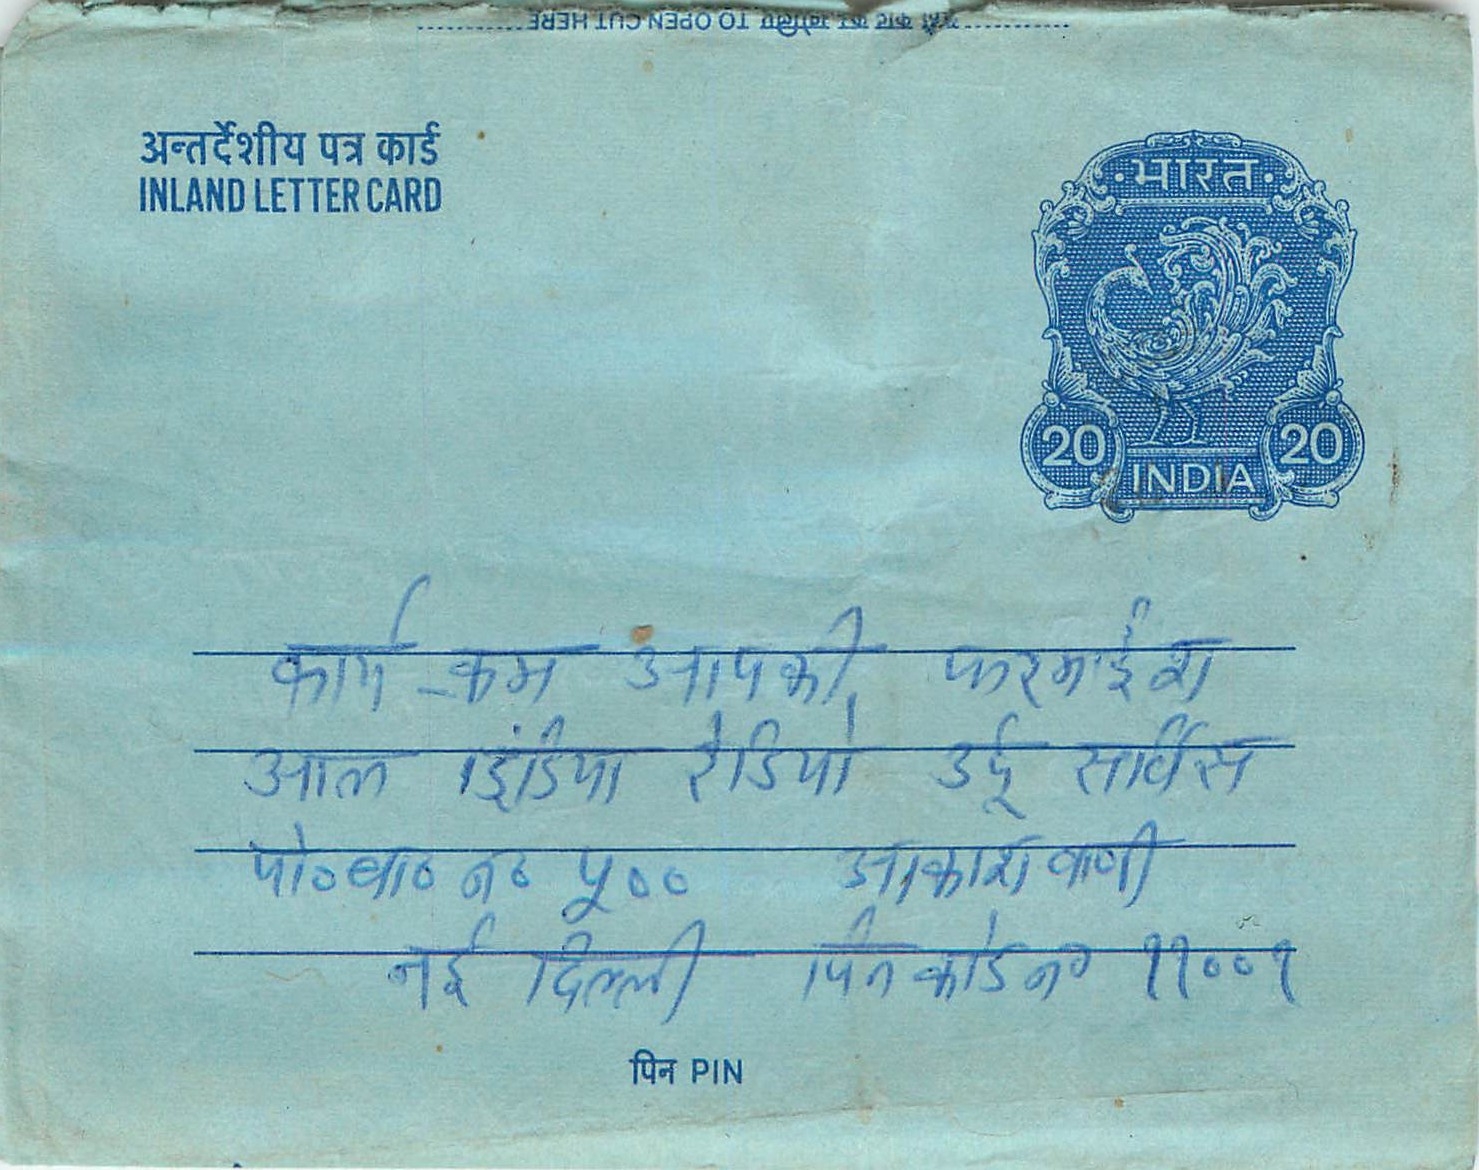 यहाँ काट कर खोलिए TO OPEN CUT HERE
अन्तर्देशीय पत्र कार्ड
INLAND LETTER CARD
भारत
20 20
INDIA
कार्य-क्रम आपकी फरमाईश
आल इंडिया रेडियो उर्दू सर्विस
पो०बा० न० ५०० आकाशवाणी
नई दिल्ली पिन कोड न० ११००१
पिन PIN